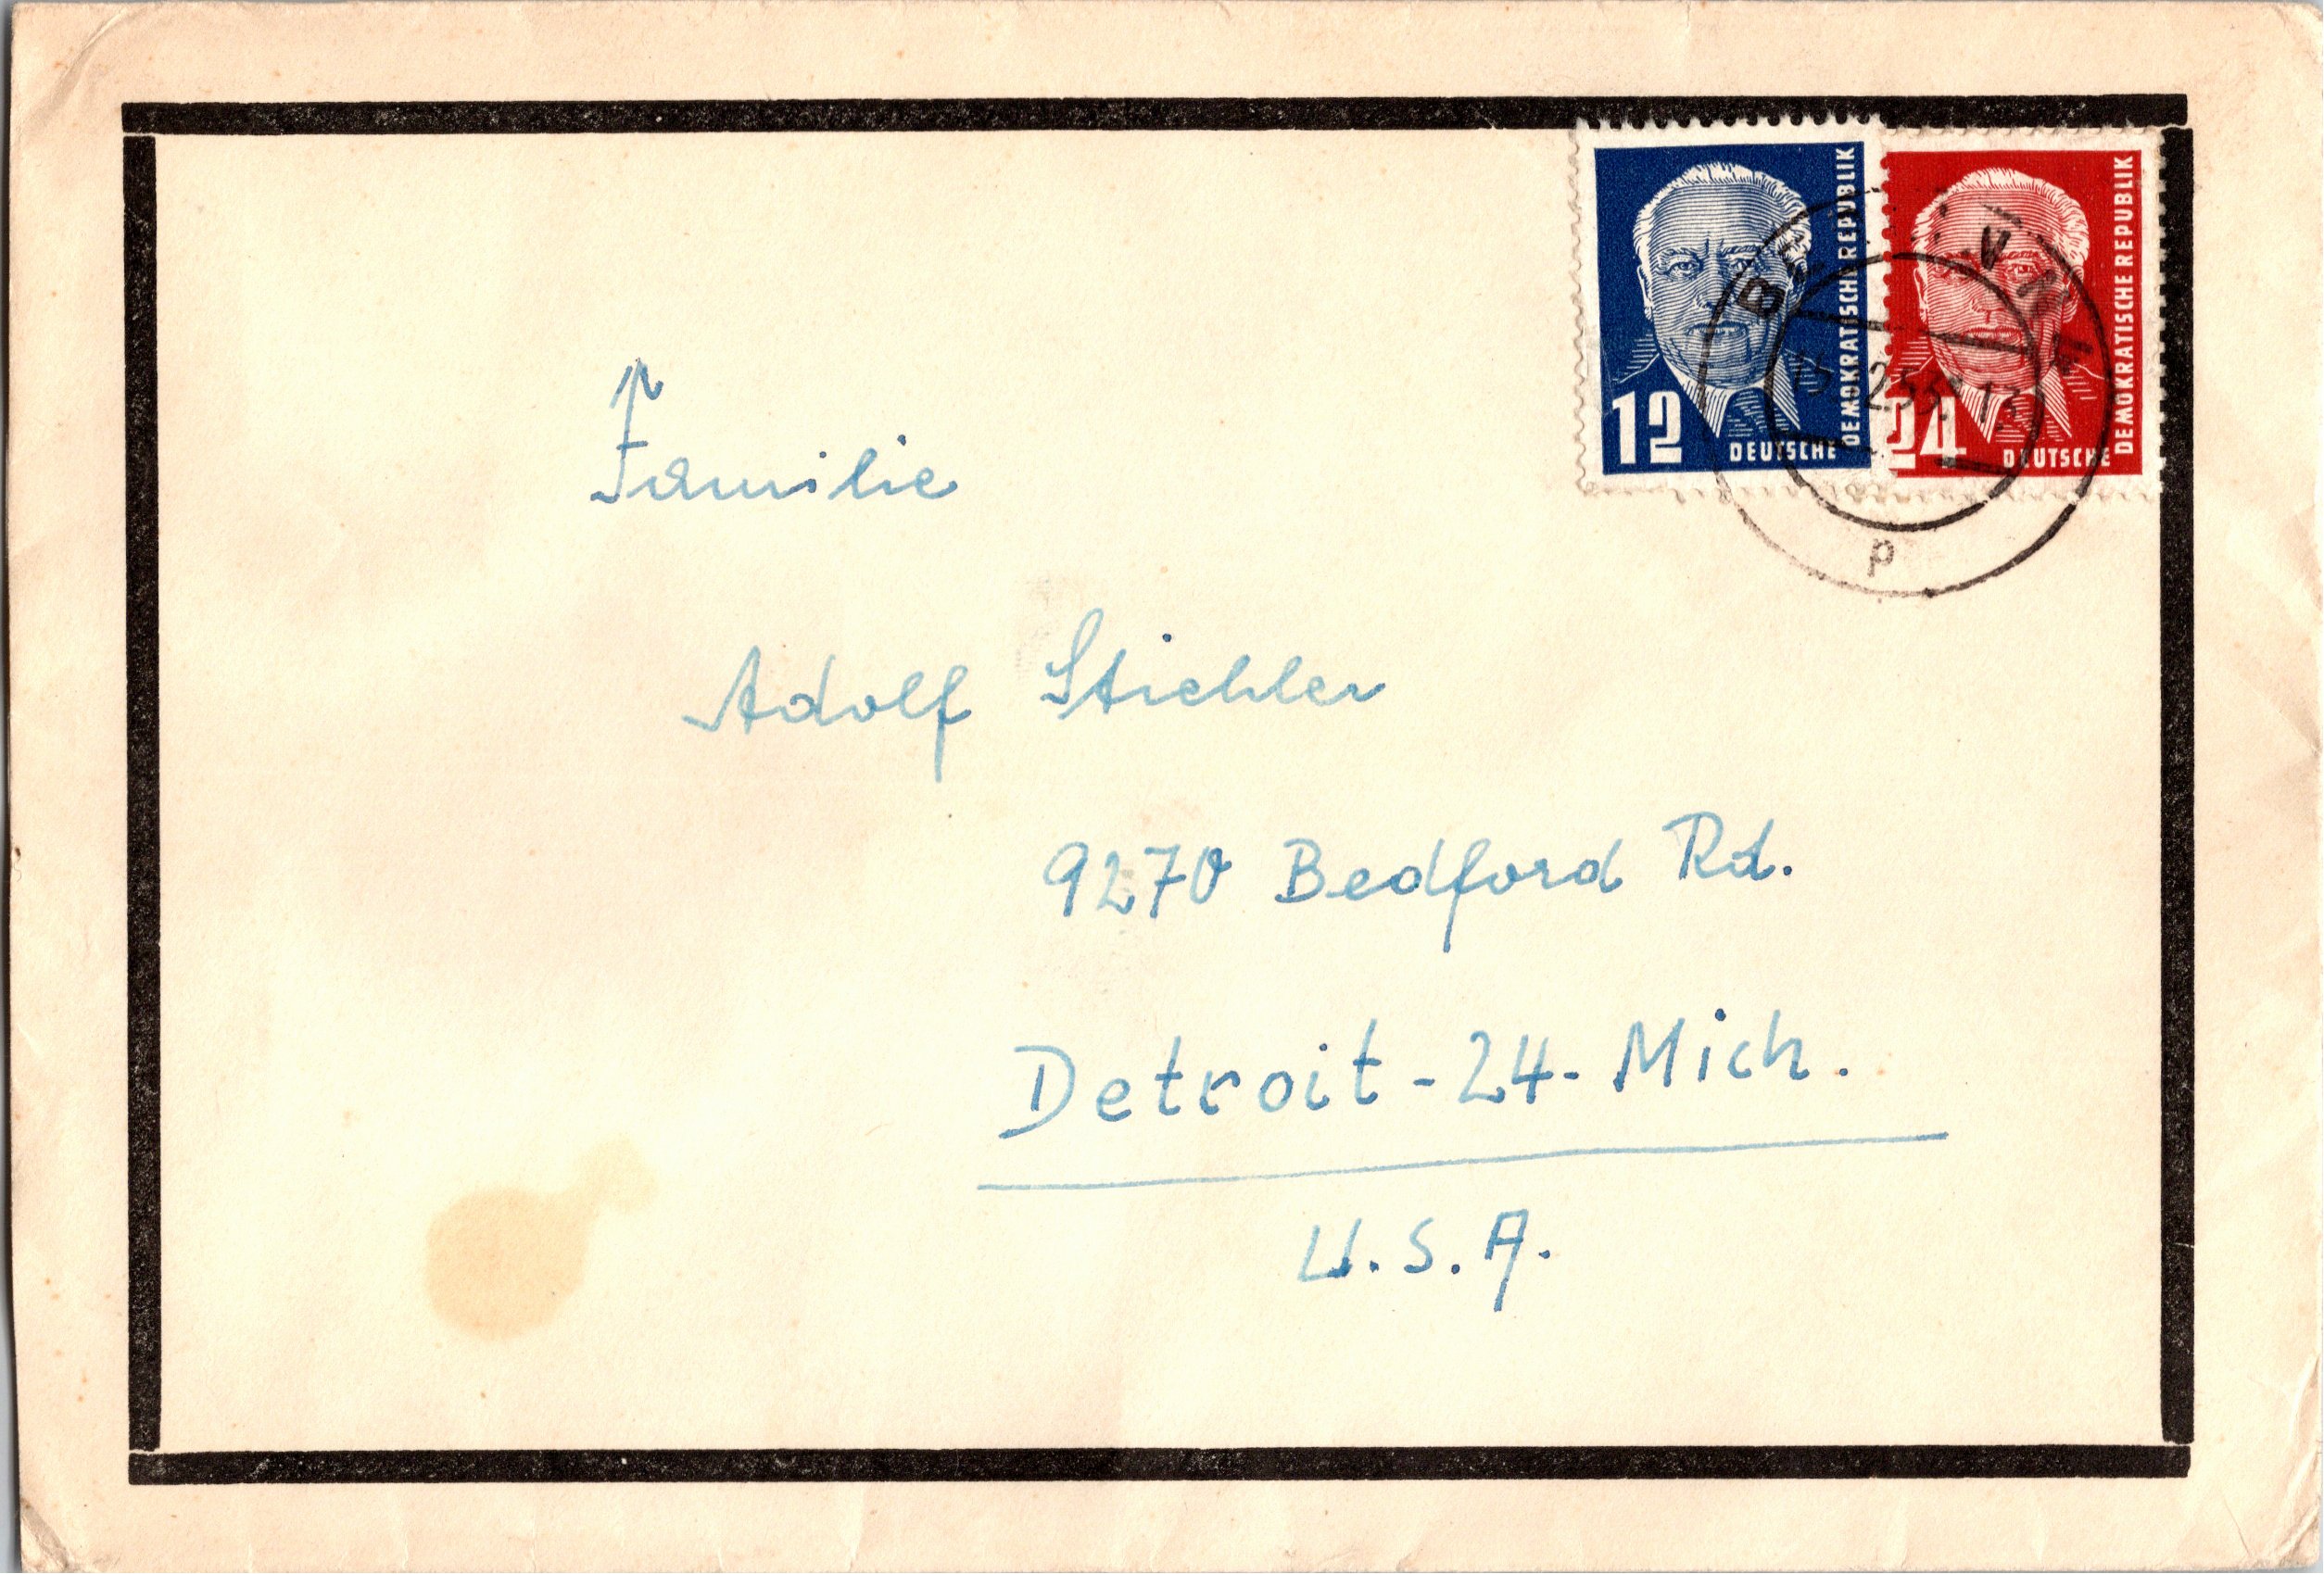 12
DEUTSCHE
DEMOKRATISCHE REPUBLIK
24
DEUTSCHE
DEMOKRATISCHE REPUBLIK
BERLIN N4
p
Familie
Adolf Stiehler
9270 Bedford Rd.
Detroit-24-Mich.
U.S.A.